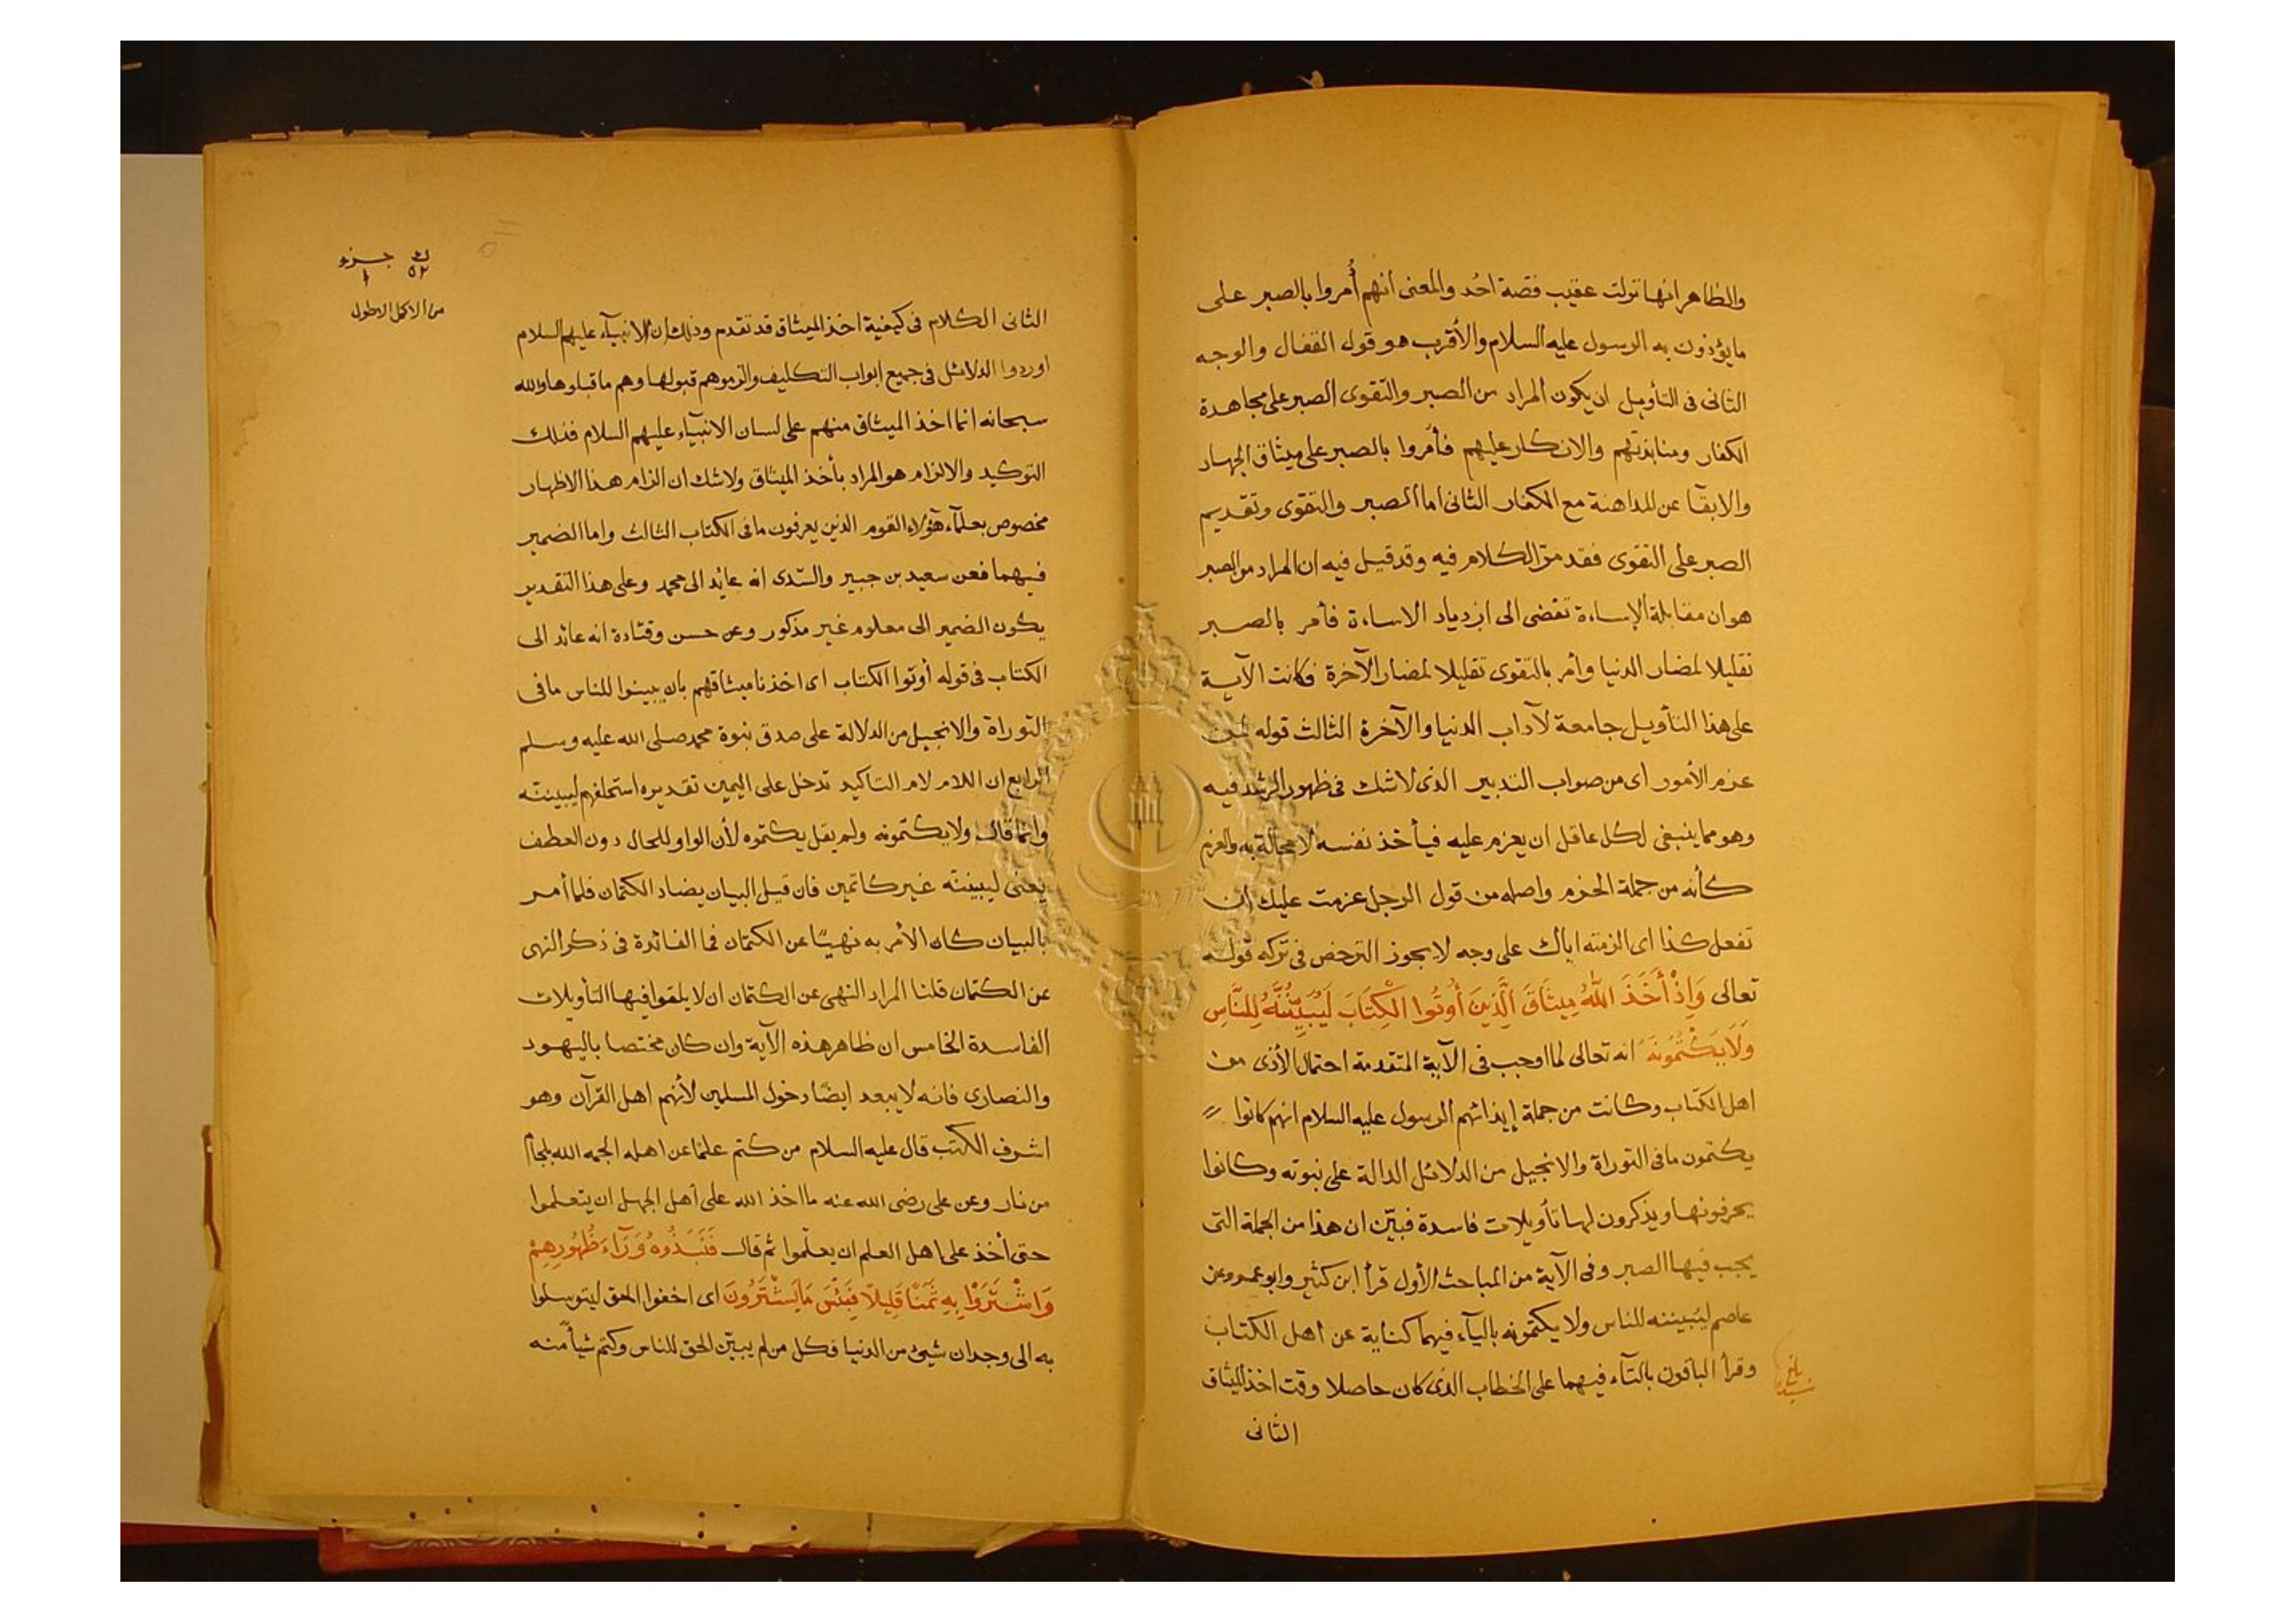 والظاهر انها نزلت عقيب قصة احُد والمعنى أنهم أُمروا بالصبر على
مايؤذون به الرسول عليه السلام والأقرب هو قول القفال والوجه
الثانى فى التأويل ان يكون المراد من الصبر والتقوى الصبر على مجاهدة
الكفار ومنابذتهم والانكار عليهم فأمروا بالصبر على ميثاق الجهاد
والابقا عن المداهنة مع الكفار الثانى اما الصبر والتقوى وتقديم
الصبر على التقوى فقد مرّ الكلام فيه وقد قيل فيه ان المراد من الصبر
هو ان مقابلة الإساءة تفضى الى ازدياد الاساءة فأمر بالصبر
تقليلا لمضار الدنيا وأمر بالتقوى تقليلا لمضار الآخرة فكانت الآية
على هذا التأويل جامعة لآداب الدنيا والآخرة الثالث قوله لمن
عزم الأمور اى من صواب التدبير الذى لاشك فى ظهور الرشد فيه
وهو مما ينبغى لكل عاقل ان يعزم عليه فيأخذ نفسه لا محالة به والعزم
كأنه من جملة الحزم واصله من قول الرجل عزمت عليك ان
تفعل كذا اى الزمته اياك على وجه لايجوز الترخص فى تركه قوله
تعالى وَاِذْ أَخَذَ اللّٰهُ مِيثَاقَ الَّذِينَ أُوتُوا الْكِتَابَ لَيُبَيِّنُنَّهُ لِلنَّاسِ
وَلَا يَكْتُمُونَهُ انه تعالى لما اوجب فى الآية المتقدمة احتمال الأذى من
اهل الكتاب وكانت من جملة إيذائهم الرسول عليه السلام انهم كانوا
يكتمون مافى التوراة والانجيل من الدلائل الدالة على نبوته وكانوا
يحرفونها ويذكرون لها تأويلات فاسدة فبيّن ان هذا من الجملة التى
يجب فيها الصبر وفى الآية من المباحث الأول قرأ ابن كثير وابو عمرو وعن
عاصم ليُبيننه للناس ولا يكتمونه باليآء فيهما كناية عن اهل الكتاب
وقرأ الباقون بالتآء فيهما على الخطاب الذى كان حاصلا وقت اخذ الميثاق
الثانى
جزء
١
٥٢
من الاكمل الاطول
الثانى الكلام فى كيفية اخذ الميثاق قد تقدم وذلك ان الانبيآء عليهم السلام
اوردوا الدلائل فى جميع ابواب التكليف والزموهم قبولها وهم ماقبلوها والله
سبحانه انما اخذ الميثاق منهم على لسان الانبيآء عليهم السلام فذلك
التوكيد والالزام هو المراد بأخذ الميثاق ولاشك ان الزام هذا الاظهار
مخصوص بعلمآء هؤلاء القوم الذين يعرفون مافى الكتاب الثالث واما الضمير
فيهما فعن سعيد بن جبير والسّدى انه عايد الى محمد وعلى هذا التقدير
يكون الضمير الى معلوم غير مذكور وعن حسن وقتادة انه عائد الى
الكتاب فى قوله أوتوا الكتاب اى اخذنا ميثاقهم بان يبينوا للناس مافى
التوراة والانجيل من الدلالة على صدق نبوة محمد صلى الله عليه وسلم
الرابع ان اللام لام التاكيد تدخل على اليمين تقديره استحلفهم ليبيننه
وانما قال ولايكتمونه ولم يقل يكتموه لأن الواو للحال دون العطف
يعنى ليبيننه غير كاتمين فان قيل البيان يضاد الكتمان فلما أمر
بالبيان كان الأمر به نهيًا عن الكتمان فما الفائدة فى ذكر النهى
عن الكتمان قلنا المراد النهى عن الكتمان ان لا يلقوا فيها التأويلات
الفاسدة الخامس ان ظاهر هذه الآية وان كان مختصا باليهود
والنصارى فانه لايبعد ايضًا دخول المسلمين لأنهم اهل القرآن وهو
اشرف الكتب قال عليه السلام من كتم علمًا عن اهله الجمه الله بلجام
من نار وعن على رضى الله عنه ما اخذ الله على أهل الجهل ان يتعلموا
حتى أخذ على اهل العلم ان يعلّموا ثم قال فَنَبَذُوهُ وَرَآءَ ظُهُورِهِمْ
وَاشْتَرَوْا بِهِ ثَمَنًا قَلِيلًا فَبِئْسَ مَا يَشْتَرُونَ اى اخفوا الحق ليتوسلوا
به الى وجدان شيئ من الدنيا فكل من لم يبيّن الحق للناس وكتم شيأ منه